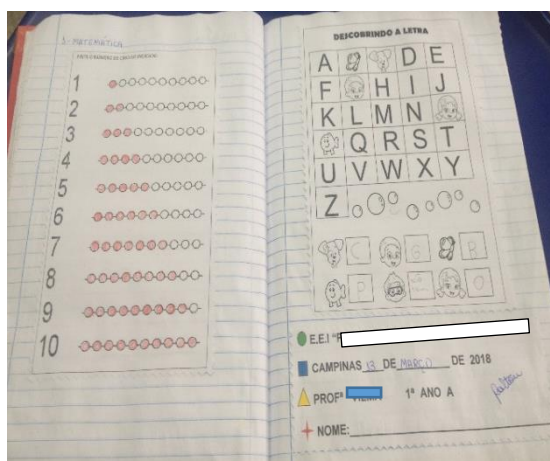 3- MATEMÁTICA
1
2
3
4
5
6
7
8
9
10
DESCOBRINDO A LETRA
A D E
F H I J
K L M N
Q R S T
U V W X Y
Z
C G B
P O
E.E.I "P
CAMPINAS 13 DE MARÇO DE 2018
PROFª 1ª ANO A
NOME: